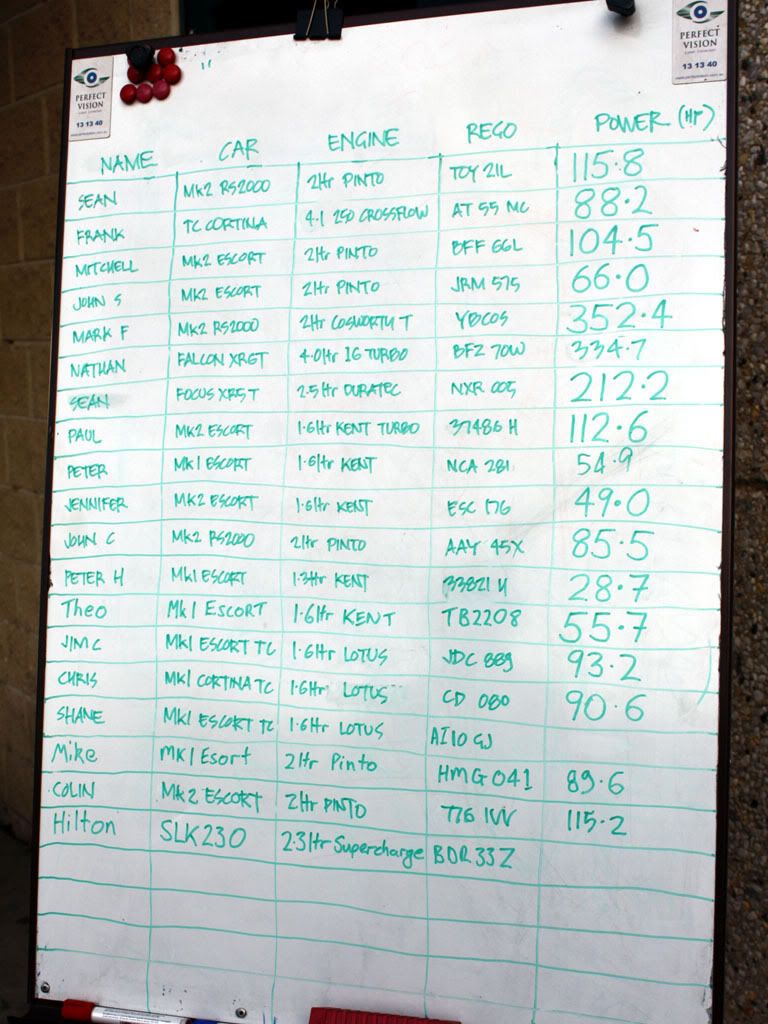 PERFECT VISION
13 13 40
PERFECT VISION
13 13 40
NAME CAR ENGINE REGO POWER (HP)
SEAN MK2 RS2000 2ltr PINTO TOY 21L 115.8
FRANK TC CORTINA 4.1 250 CROSSFLOW AT 55 MC 88.2
MITCHELL MK2 ESCORT 2ltr PINTO BFF 66L 104.5
JOHN S MK2 ESCORT 2ltr PINTO JRM 575 66.0
MARK F MK2 RS2000 2ltr COSWORTH T YBCOS 352.4
NATHAN FALCON XR6T 4.0ltr I6 TURBO BFZ 70W 334.7
SEAN FOCUS XR5T 2.5ltr DURATEC NXR 005 212.2
PAUL MK2 ESCORT 1.6ltr KENT TURBO 37486 H 112.6
PETER MK1 ESCORT 1.6ltr KENT NCA 281 54.9
JENNIFER MK2 ESCORT 1.6ltr KENT ESC 176 49.0
JOHN C MK2 RS2000 2ltr PINTO AAY 45X 85.5
PETER H MK1 ESCORT 1.3ltr KENT 33821 H 28.7
Theo Mk1 Escort 1.6ltr KENT TB2208 55.7
JIM C MK1 ESCORT TC 1.6ltr LOTUS JDC 889 93.2
CHRIS MK1 CORTINA TC 1.6ltr LOTUS CD 080 90.6
SHANE MK1 ESCORT TC 1.6ltr LOTUS AI10 GJ
Mike MK1 Esort 2ltr Pinto HMG 041 89.6
COLIN MK2 ESCORT 2ltr PINTO 776 IVV 115.2
Hilton SLK230 2.3ltr Supercharge BDR 33Z